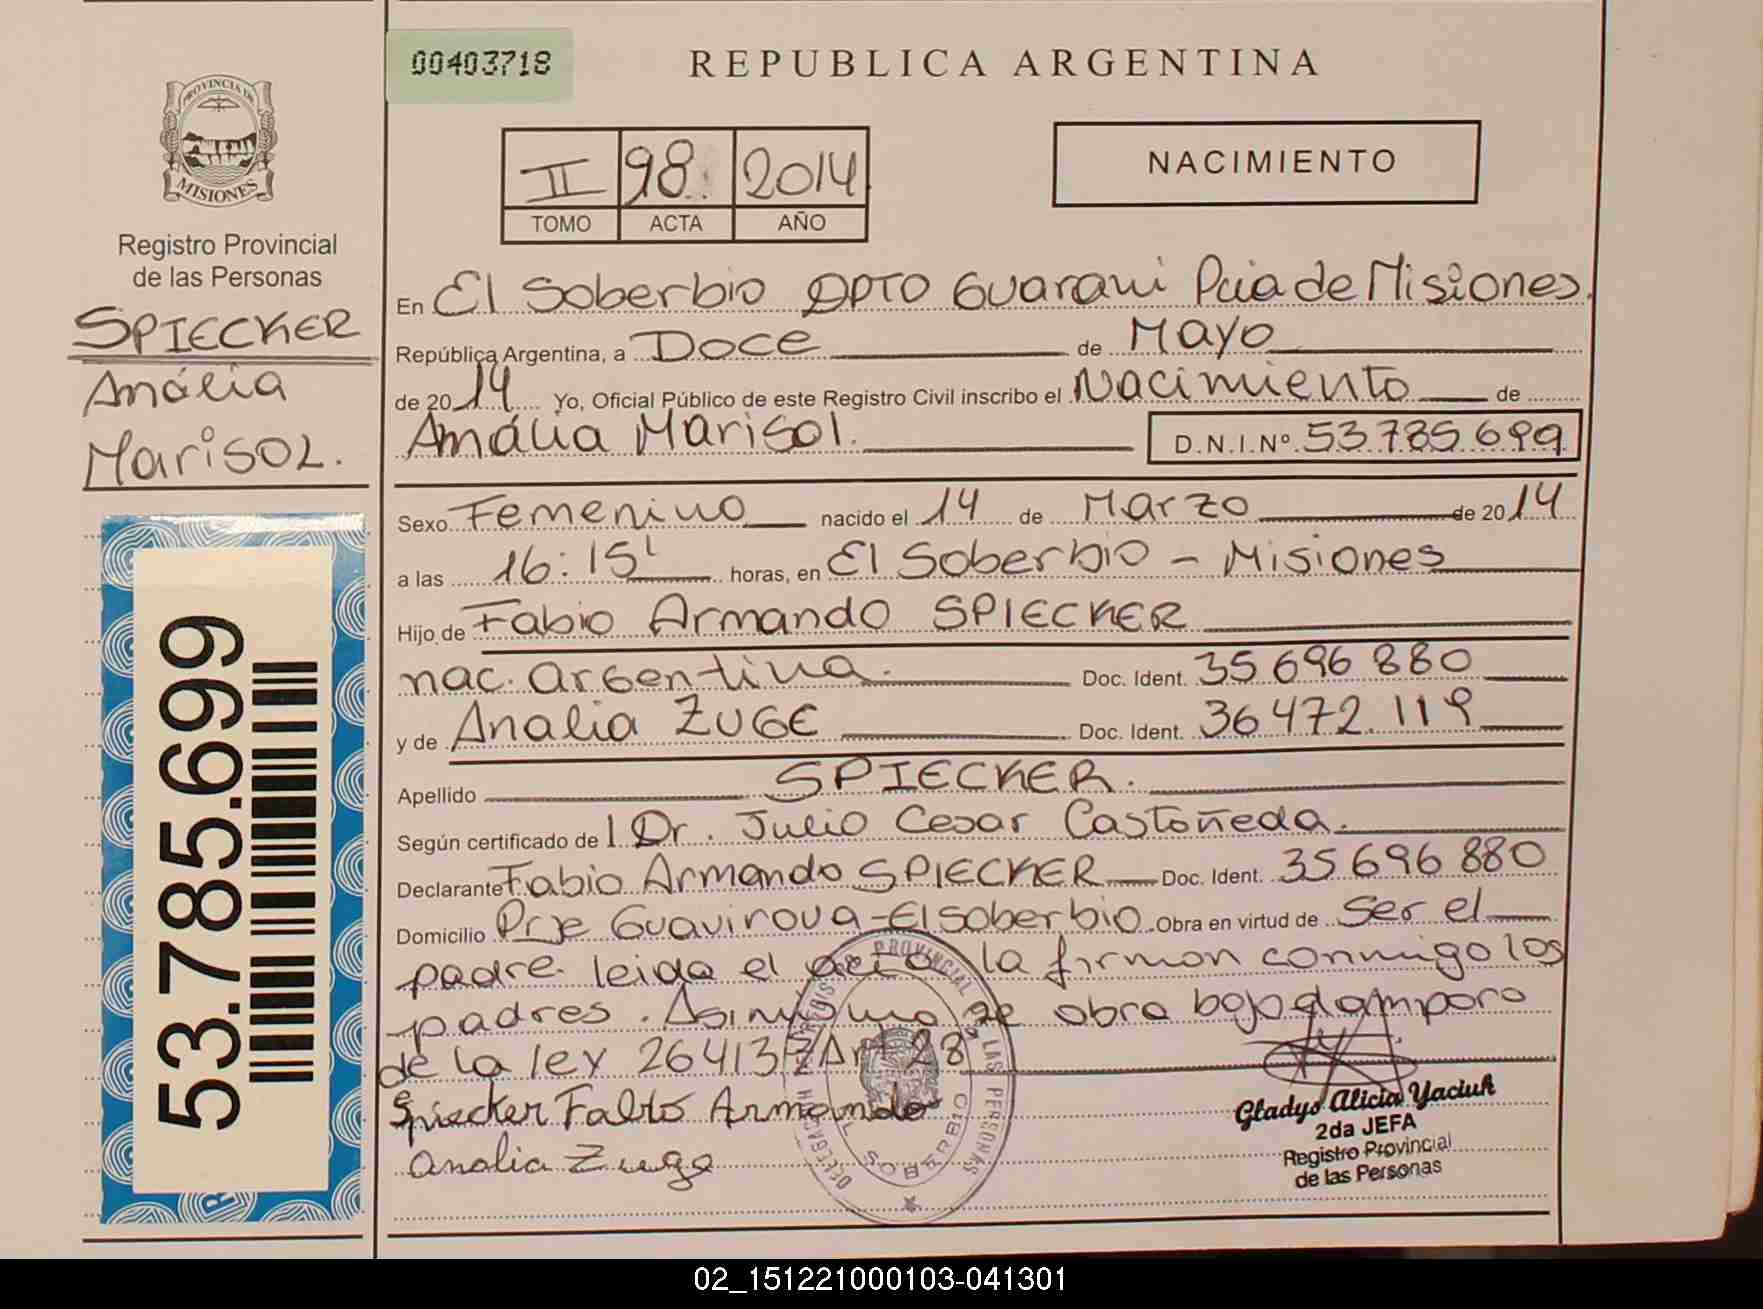 00403718
REPUBLICA ARGENTINA
PROVINCIA DE
MISIONES
Registro Provincial
de las Personas
SPIECKER
Amália
Marisol.
53.785.699
II 98 2014
TOMO ACTA AÑO
NACIMIENTO
En El Soberbio DPTO Guarani Pcia de Misiones.
República Argentina, a Doce de Mayo
de 2014 Yo, Oficial Público de este Registro Civil inscribo el Nacimiento de
Amália Marisol. D.N.I.Nº 53.785.699
Sexo Femenino nacido el 14 de Marzo de 2014
a las 16:15' horas, en El Soberbio - Misiones
Hijo de Fabio Armando SPIECKER
nac. argentina. Doc. Ident. 35 696 880
y de Analia ZUGE Doc. Ident. 36 472.119
Apellido SPIECKER.
Según certificado de l Dr. Julio Cesar Castoñeda.
Declarante Fabio Armando SPIECKER Doc. Ident. 35 696 880
Domicilio Prje Guavirova - El soberbio Obra en virtud de ser el
padre. leida el acta la firman conmigo los
padres. Asimismo se obra bajo el amparo
de la ley 26413/Art 28ª
Spiecker Fabio Armando
Analia Zuge
DELEGACION REGISTRO PROVINCIAL DE LAS PERSONAS
EL SOBERBIO
Gladys Alicia Yaciuk
2da JEFA
Registro Provincial
de las Personas
02_151221000103-041301